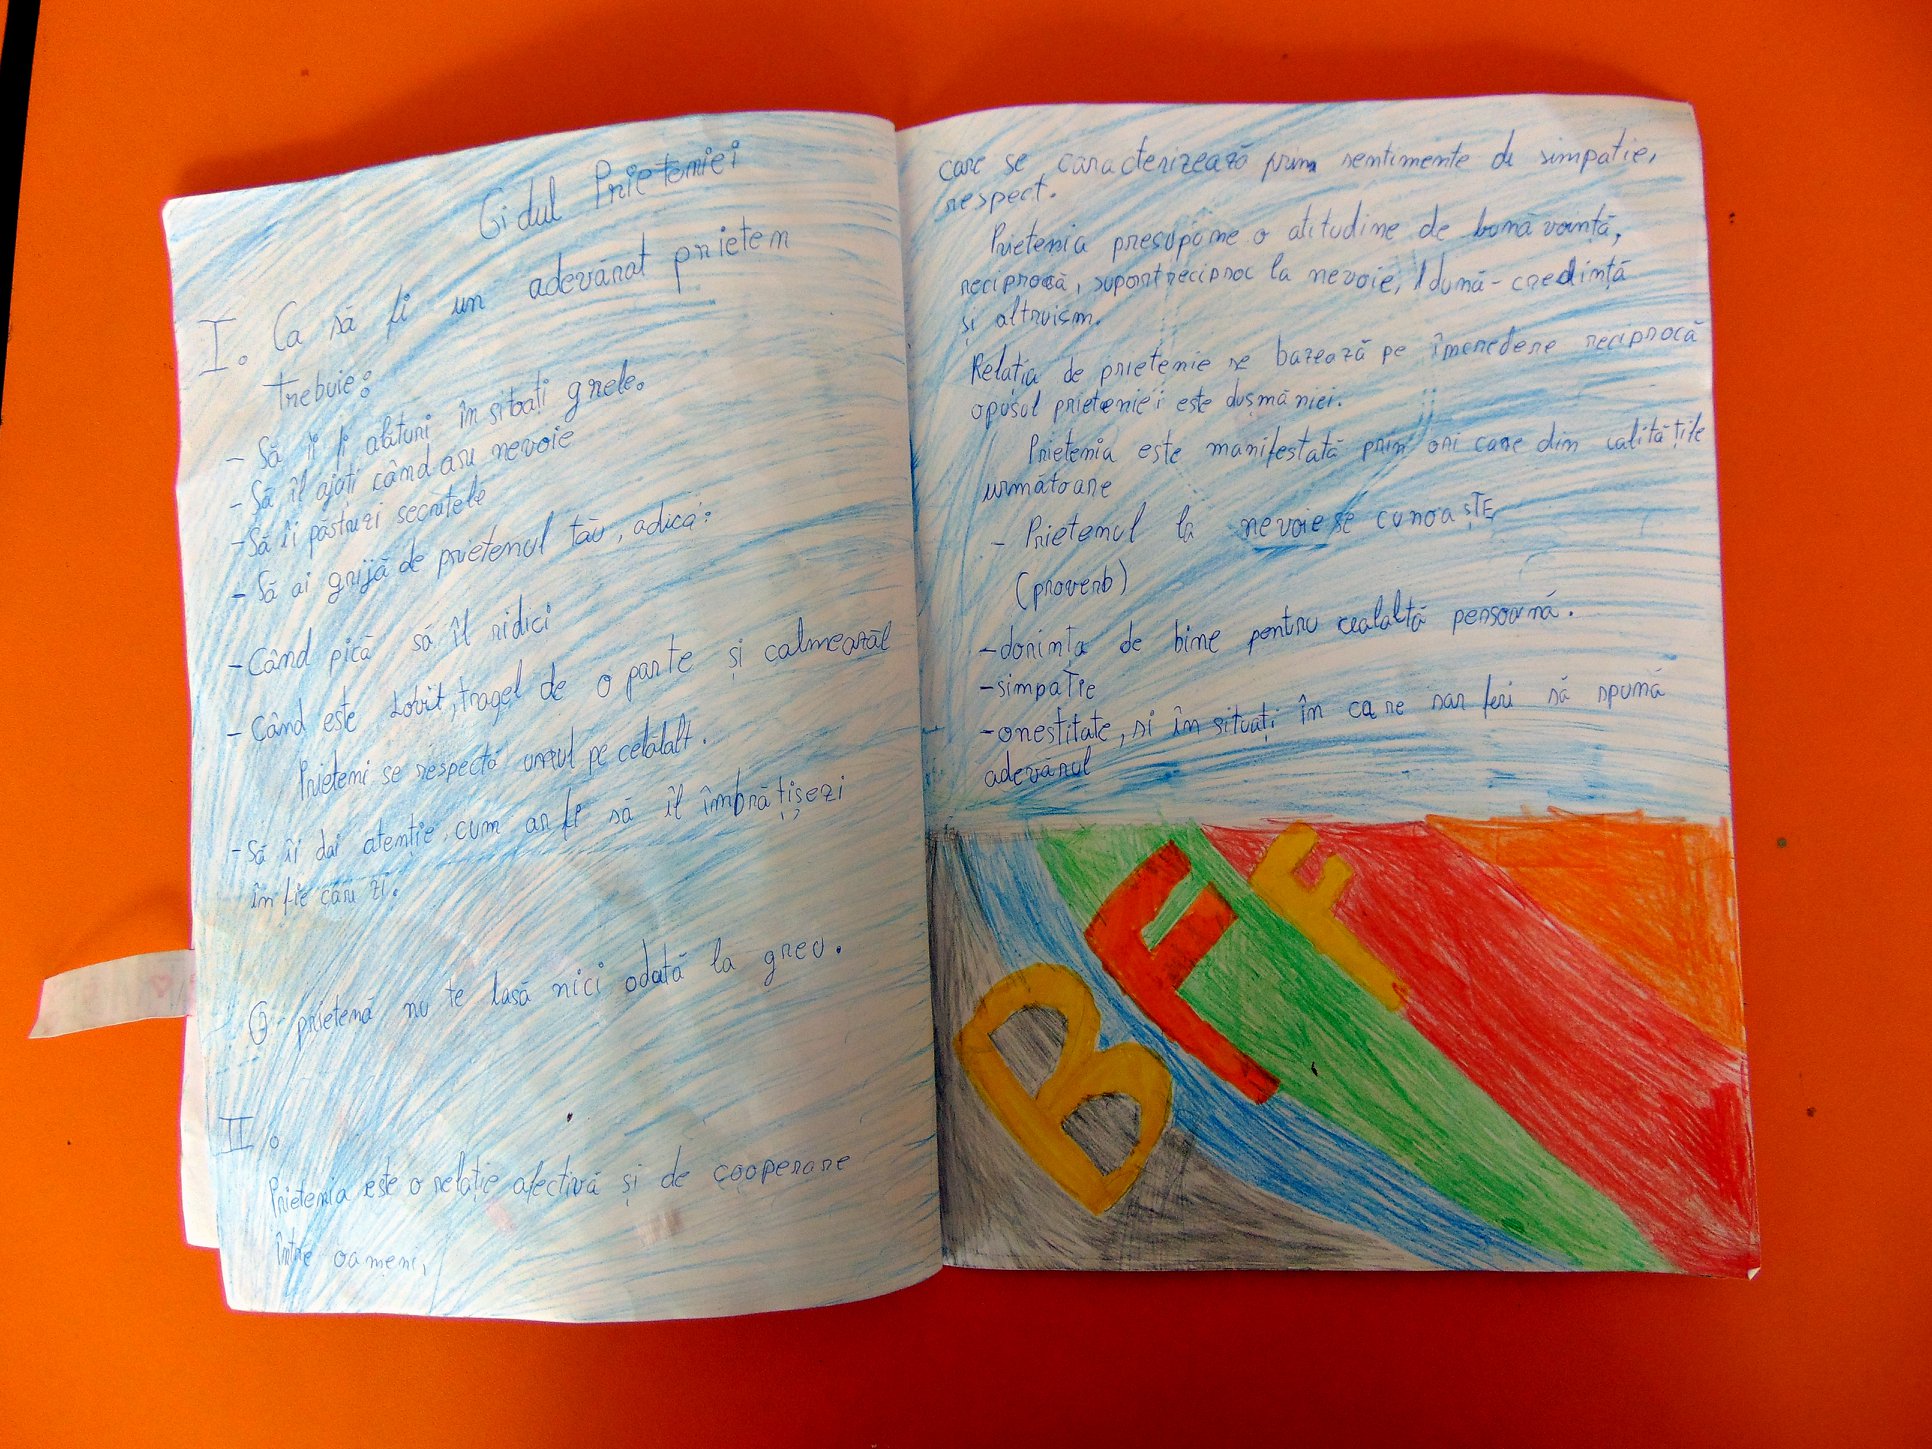 Gidul Prieteniei
I. Ca să fi un adevărat prieten
trebuie:
- Să îi fi alături în sitoati grele.
- Să îl ajoti când asu nevoie
- Să îi păstrezi secretele
- Să ai grijă de prietenul tău, adică:
- Când pică să îl ridici
- Când este lovit, tragel de o parte și calmeazăl
Prieteni se respectă unul pe celălalt.
- Să îi dai atenție, cum ar fi să îl îmbrățișezi
în fie care zi.
O prietenă nu te lasă nici odată la greu.
II.
Prietenia este o relație afectivă și de cooperare
între oameni,
care se caracterizează prin sentimente de simpatie,
respect.
Prietenia presupune o atitudine de bună voință,
reciprocă, suport reciproc la nevoie, bună-credință
și altruism.
Relația de prietenie se bazează pe încredere reciprocă
opusul prieteniei este dușmăniei.
Prietenia este manifestată prin ori care din calitățile
următoare
- Prietenul la nevoie se cunoaȘTE
(proverb)
- dorința de bine pentru cealaltă persoană.
- simpatie
- onestitate, si în situați în care sar feri să spună
adevărul
BFF